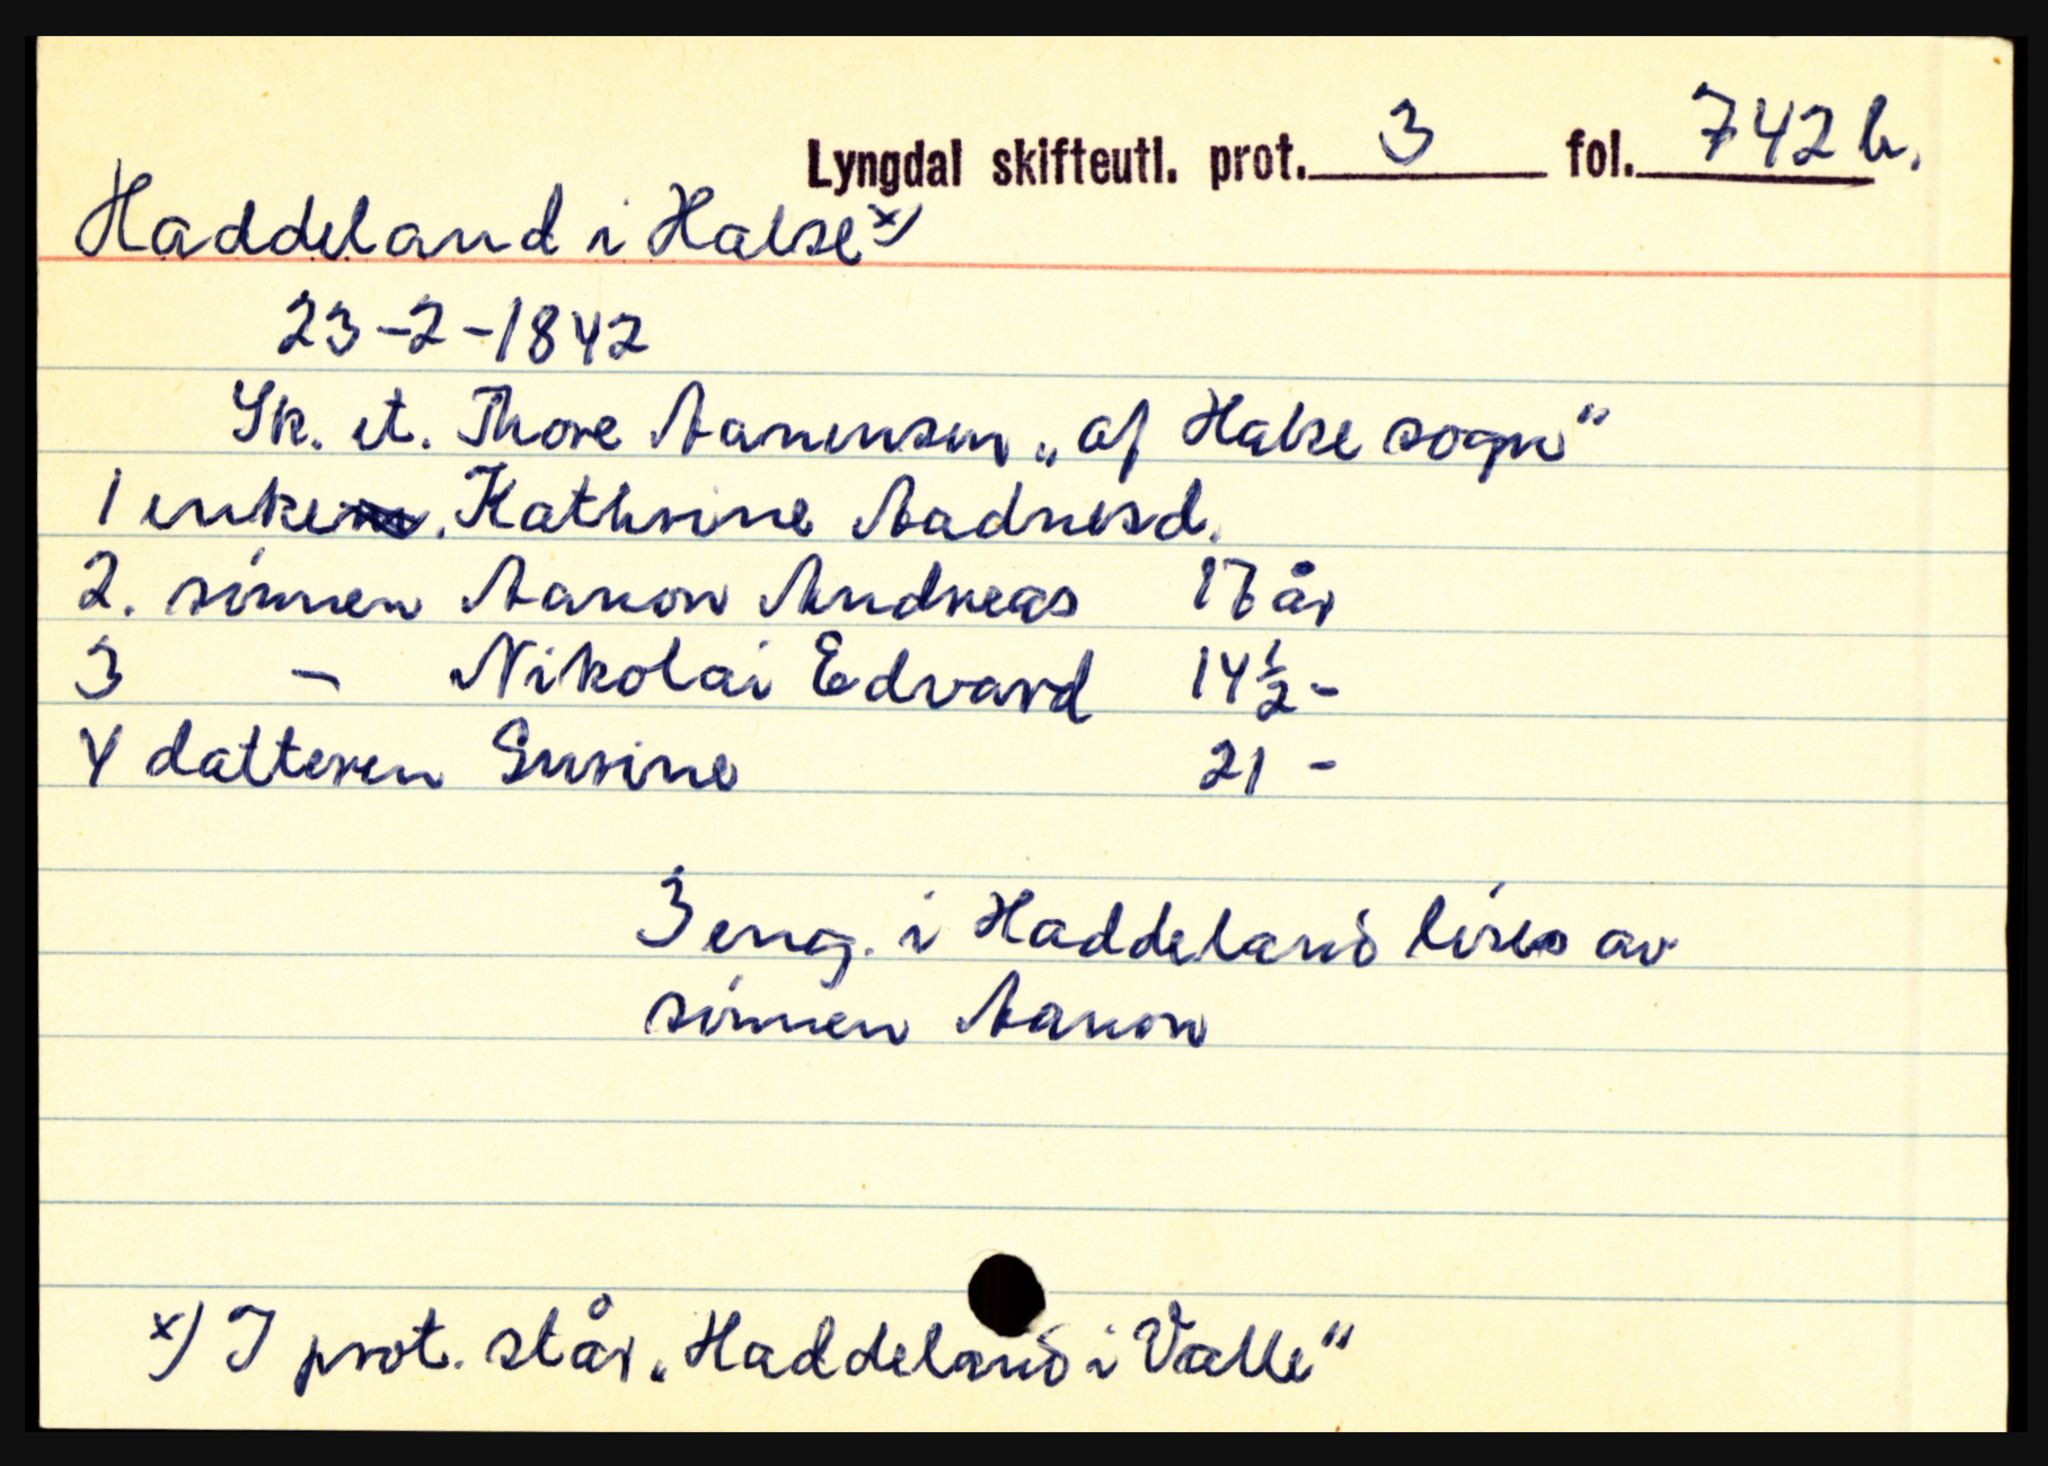 Lyngdal skifteutl. prot. 3 fol. 742 b.
Haddeland i Halse x)
23-2-1842
Sk. et. Thore Aanensen „af Halse sogn"
1 enken. Kathrine Aadnesd.
2. sønnen Aanon Andreas 17 år
3 - Nikolai Edvard 14½ -
4 datteren Gurine 21 -
3 eng. i Haddeland løses av
sønnen Aanon
x) I prot. står „Haddeland i Valle"